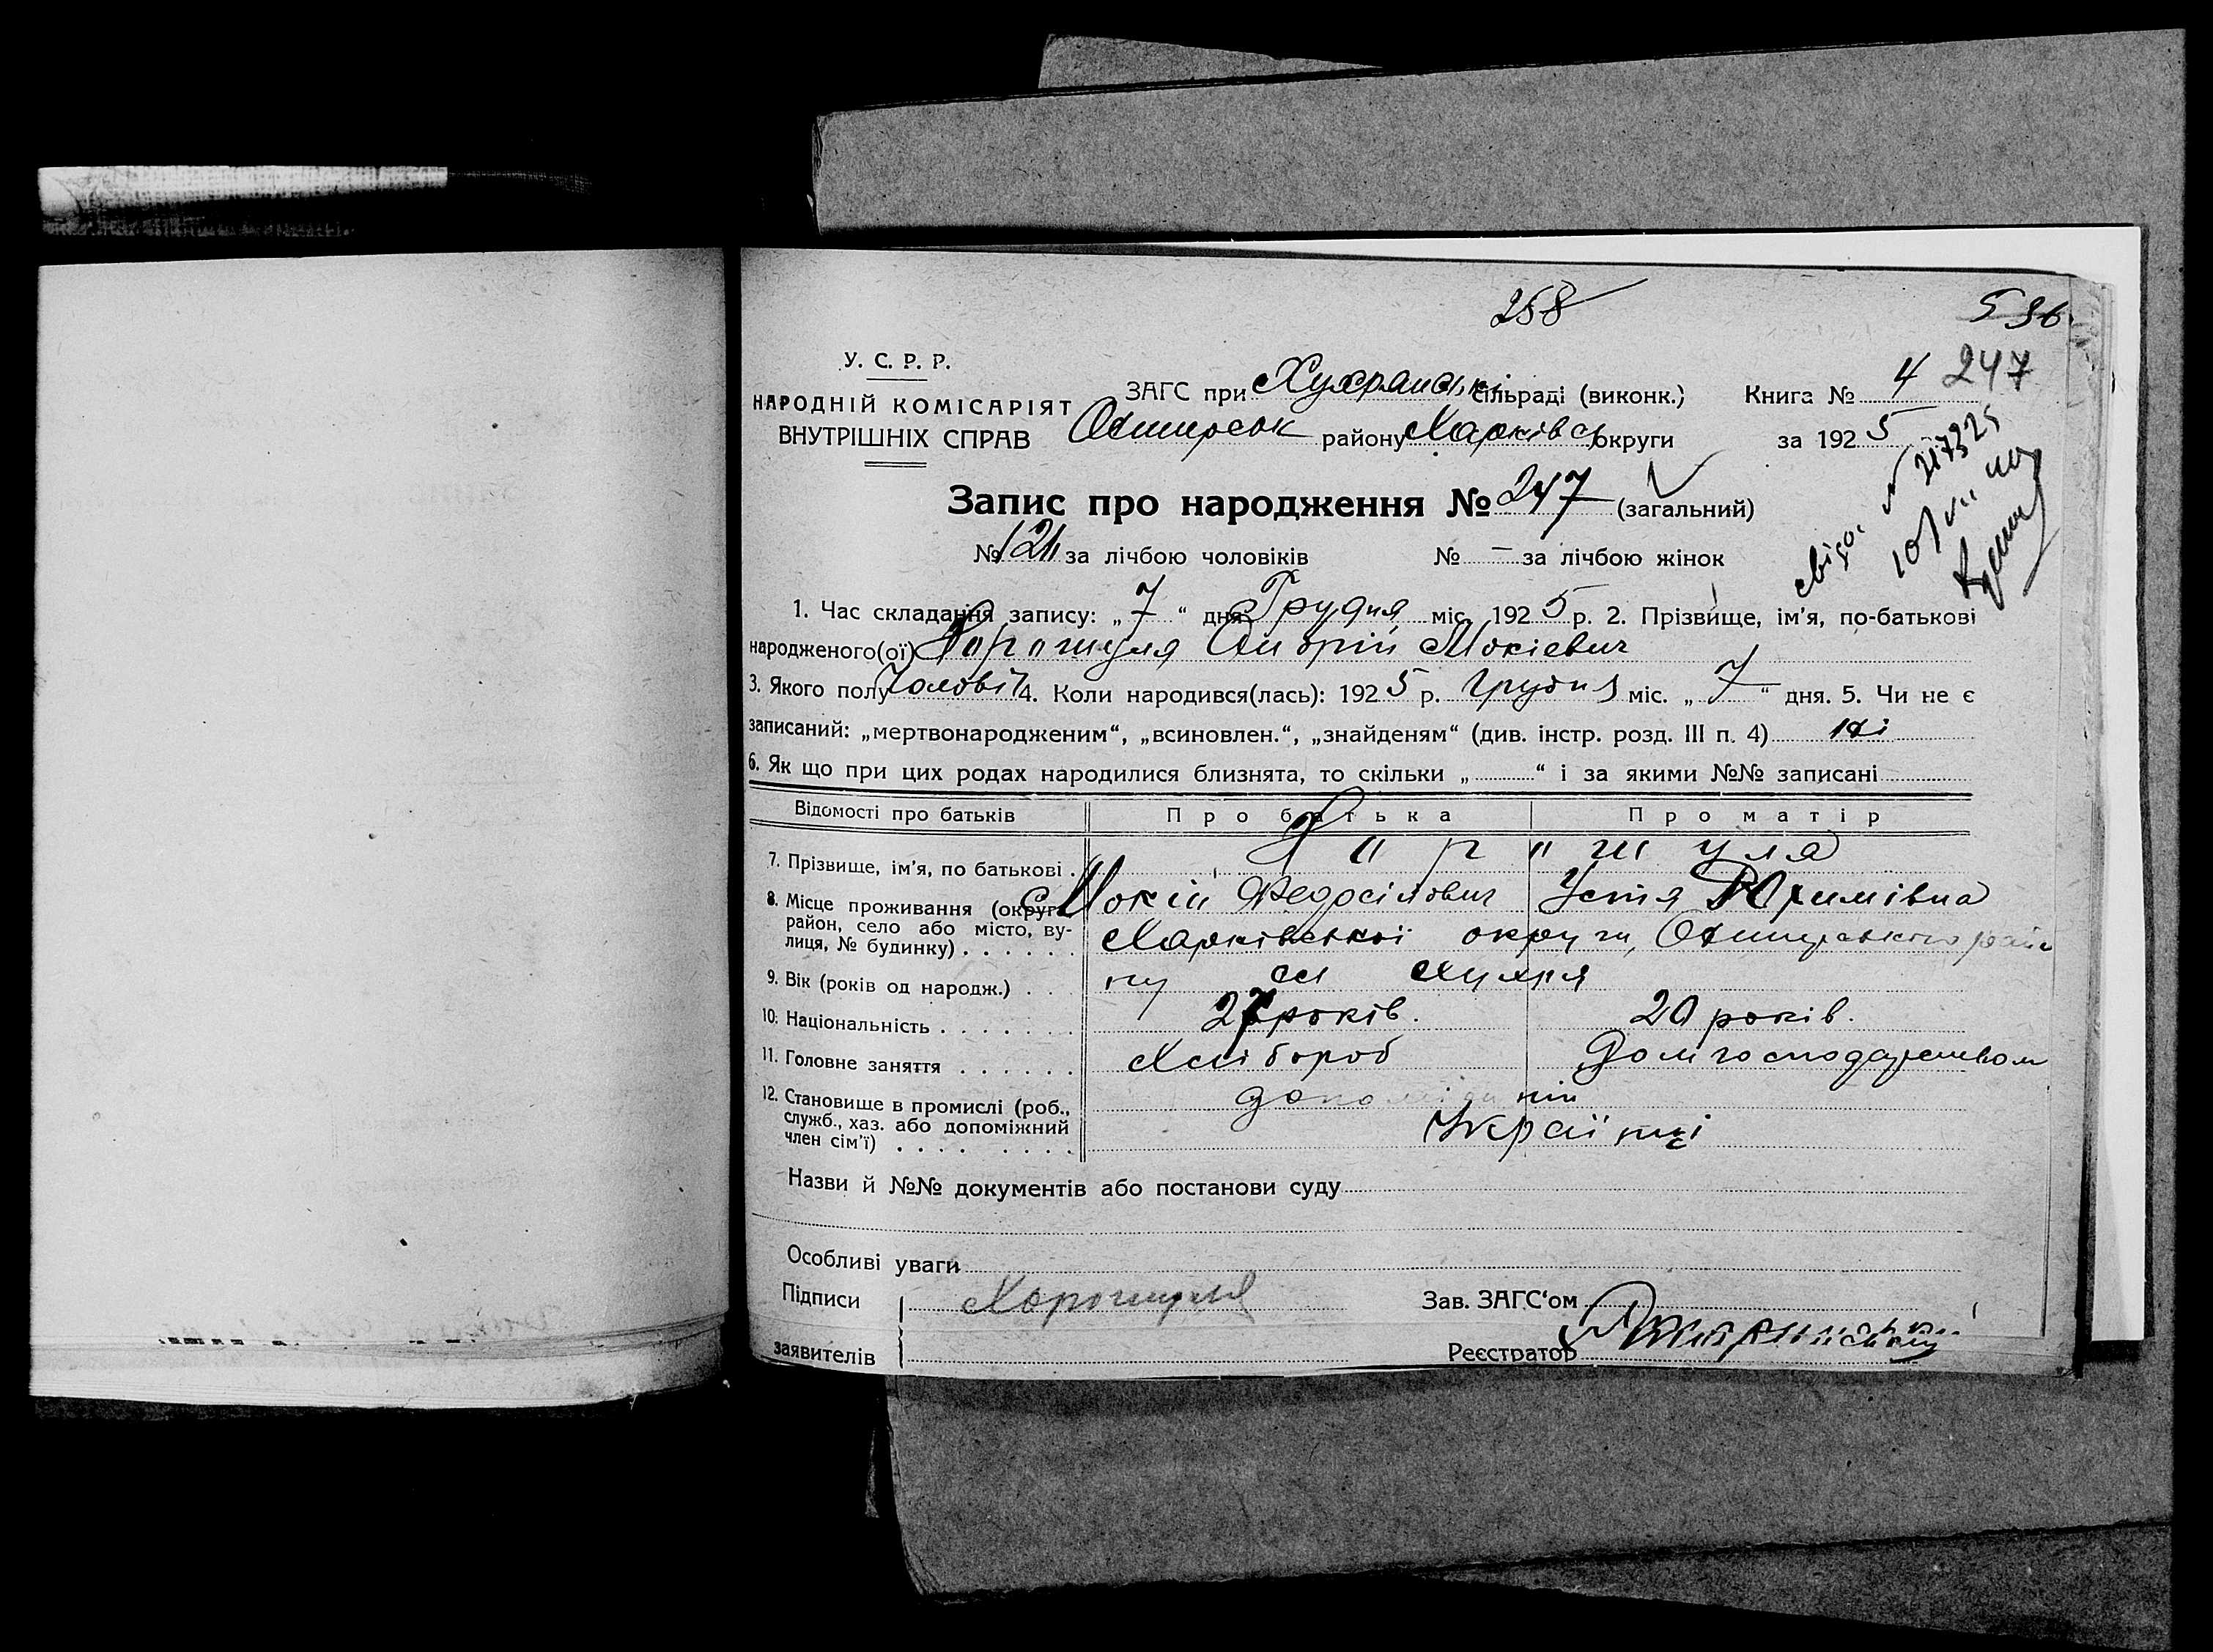 258
536
У. С. Р. Р.
НАРОДНІЙ КОМІСАРІЯТ
ВНУТРІШНІХ СПРАВ
ЗАГС при Хухрянські сільраді (виконк.) Книга № 4 247
Охтирськ району Харківс округи за 1925
Запис про народження № 247 (загальний)
№ 121 за лічбою чоловіків № — за лічбою жінок
свідо. №
1. Час складання запису: „7“ дня Грудня міс. 1925 р. 2. Прізвище, ім’я, по-батькові
народженого(ої) Хорошуля Андрій Мокієвич
3. Якого полу Чоловіч 4. Коли народився(лась): 1925 р. грудня міс. „7“ дня. 5. Чи не є
записаний: „мертвонародженим“, „всиновлен.“, „знайденям“ (див. інстр. розд. III п. 4) ні
6. Як що при цих родах народилися близнята, то скільки „ “ і за якими №№ записані
Відомості про батьків Про батька Про матір
7. Прізвище, ім’я, по батькові . Хорошуля
8. Місце проживання (округа район, село або місто, вулиця, № будинку) . . . . . .
Мокій Федосійович Устя Юхимівна
Харківської округи, Охтирського райо
9. Вік (років од народж.) . . ну с. Хухря
10. Національність . . . . . . 27 років. 20 років.
11. Головне заняття . . . . . . Хлібороб Домгосподарством
12. Становище в промислі (роб., служб., хаз. або допоміжний член сім’ї) . . . . . . . .
Українці
Назви й №№ документів або постанови суду
Особливі уваги
Підписи Хорошуля Зав. ЗАГС‘ом
заявителів Реєстратор